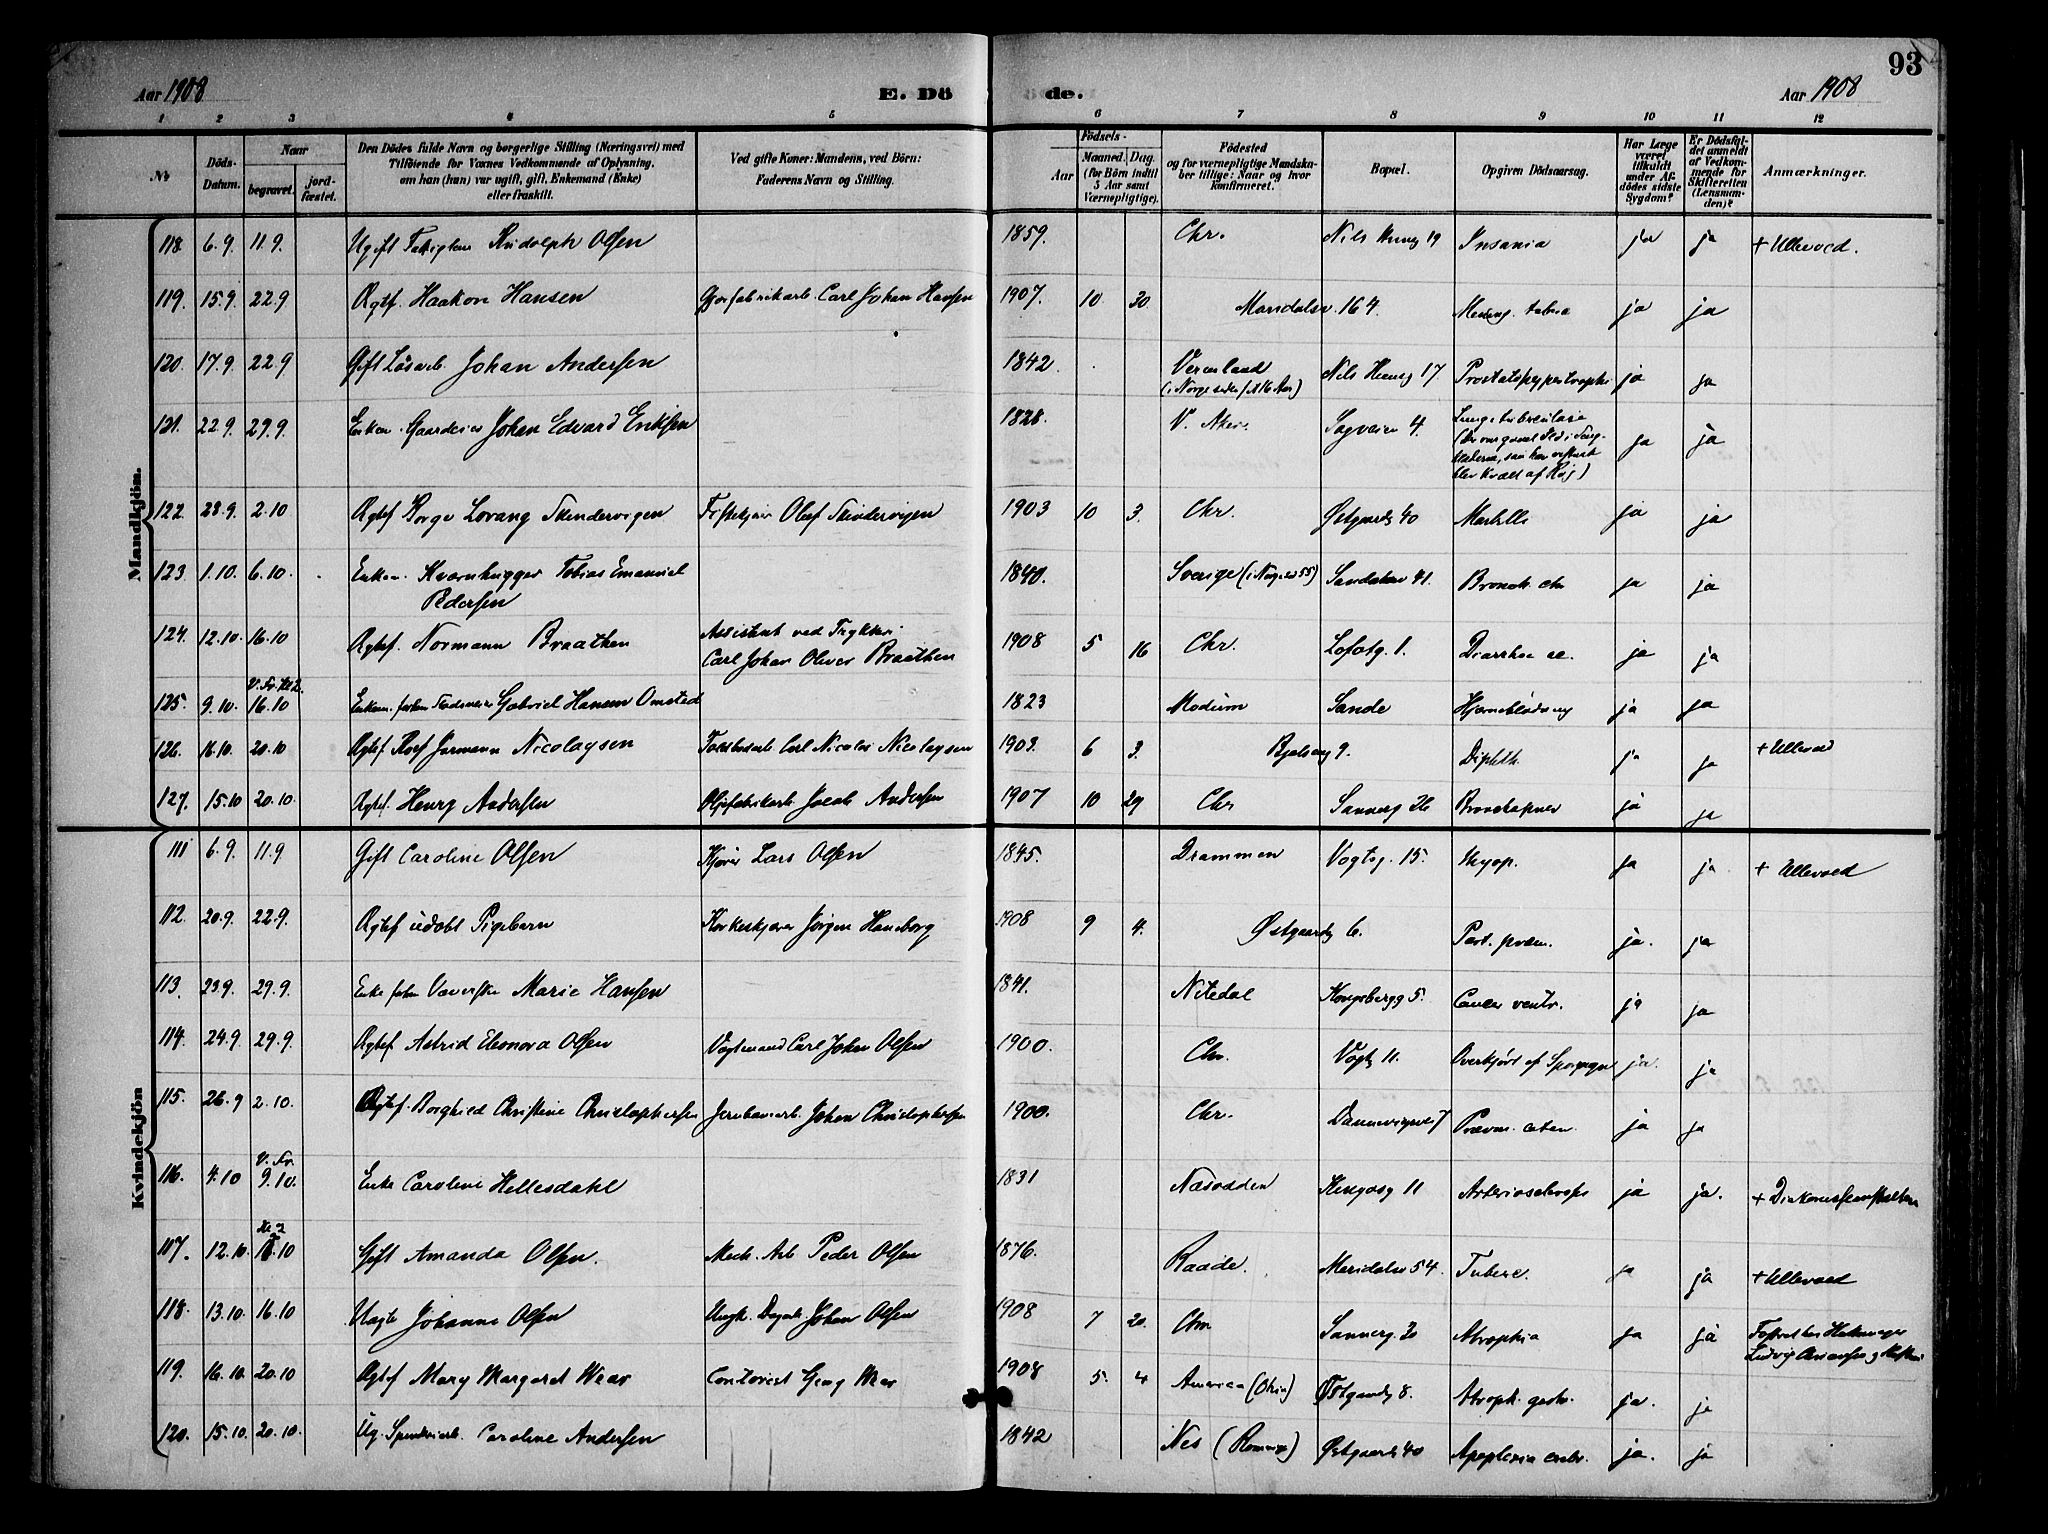 93
Aar 1908
E. Dö
de.
Aar 1908
1 2 3 4 5 6 7 8 9 10 11 12
№
Döds-Datum.
Naar
begravet.
jord-fæstet.
Den Dödes fulde Navn og borgerlige Stilling (Næringsvei) med
Tilföiende for Voxnes Vedkommende af Oplysning,
om han (hun) var ugift, gift, Enkemand (Enke)
eller fraskilt.
Ved gifte Koner: Mandens, ved Börn:
Faderens Navn og Stilling.
Födsels-
Aar
Maaned. Dag.
(for Börn indtil
5 Aar samt
Værnepligtige).
Födested
og for værnepligtige Mandska-
ber tillige: Naar og hvor
konfirmeret.
Bopæl.
Opgiven Dödsaarsag.
Har Læge
været
tilkaldt
under Af-
dödes sidste
Sygdom?
Er Dödsfal-
det anmeldt
af Vedkom-
mende for
Skifteretten
(Lensman-
den)?
Anmærkninger.
Mandkjön.
118. 6.9. 11.9. Ugift Rudolph Olsen 1859. Chr. 19 Insania ja ja + Ullevaal.
119. 15.9. 22.9 Ægtef. Haakon Hansen Carl Johan Hansen 1907. 10 30 Maridalsv. 164. Mening. tuberc ja ja
120. 17.9. 22.9 Gift Løsarb Johan Andersen 1842 Vermland Nils Huusg 17 Prostatahypertrophi ja ja
121. 22.9. 29.9. Enkem. Gaardeier Johan Edvard Eriksen 1828. V. Aker. Sagveien 4. Lungetuberculose ja ja
blev kvalt af Røg)
122. 28.9. 2.10 Ægtef Borge Lorang Skindervigen Olaf Skindervigen 1903 10 3. Chr. Østgaardsg 40 Morbilli ja ja
123. 1.10. 6.10. Enkem. Kværnhugger Tobias Emanuel
Pedersen 1840. Sverige (i Norge 55) Sandakerv 41. Bronch. chr ja ja
124. 12.10. 16.10 Ægtef. Normann Braathen Assistent ved
Carl Johan Oliver Braathen 1908 5 16 Chr. Lofotg. 1. Diarrhoe ac. ja ja
125. 9.10. 16.10 Enkem. Gabriel Hansen Omsted 1823 Modum Sande Hjerneblødning ja ja
126. 16.10. 20.10 Ægtef Rolf Normann Nicolaysen Carl Nicolai Nicolaysen 1903. 6 3. Bjølseng 9. Diphth. ja ja + Ullevaal
127. 15.10 20.10. Ægtef Henry Andersen Oljefabrikarb. Jacob Andersen 1907 10 29 Chr Sannerg 26 ja ja
Kvindekjön
111 6.9. 11.9. Gift Caroline Olsen Kjører Lars Olsen 1845. Drammen Vogtsg. 15. Myop. ja ja + Ullevaal
112. 20.9. 22.9. Ægtef udøbt Pigebarn Korkeskjærer Jørgen Haneborg 1908 9 4. Østgaardsg 6. Part. præm. ja. ja
113. 23.9. 29.9. Enke Væverske Marie Hansen 1841. Nitedal Kongsbergg 5. Cancer ventr. ja ja
114. 24.9. 29.9. Ægtef Astrid Eleonora Olsen Vogtmand Carl Johan Olsen 1900. Chr. Vogtsg 11. Overkjørt af Sporvogn ja. ja
115. 26.9 2.10. Ægtef. Borghild Christine Christophersen Jernbanearb. Johan Christophersen 1900. Chr. Dannevigsvei 7 ja ja
V. Fr.
116. 4.10 9.10. Enke Caroline Hellesdahl 1831 Næsodden 11 Arteriosclerose ja ja. + Diakonissanstalten
Kl 2
117. 12.10. 16.10 Gift Amanda Olsen. Mek. Arb Peder Olsen 1876. Raade. Maridalsv 54. Tuberc. ja ja + Ullevaal
118. 13.10. 16.10 Uægte Johanne Olsen Johan Olsen 1908 7 20. Chr Sannerg. 20 Atrophia ja ja
119. 16.10. 20.10 Ægtef Mary Margaret Wear Contorist Georg Wear 1908 5. 4 America (Ohio) Østgaardsg 8. Atroph. gastr. ja. ja
120. 15.10. 20.10. Ug. Caroline Andersen 1842 Nes (Romerige) Østgaardsg 40 Apoplexia cerebr. ja. ja